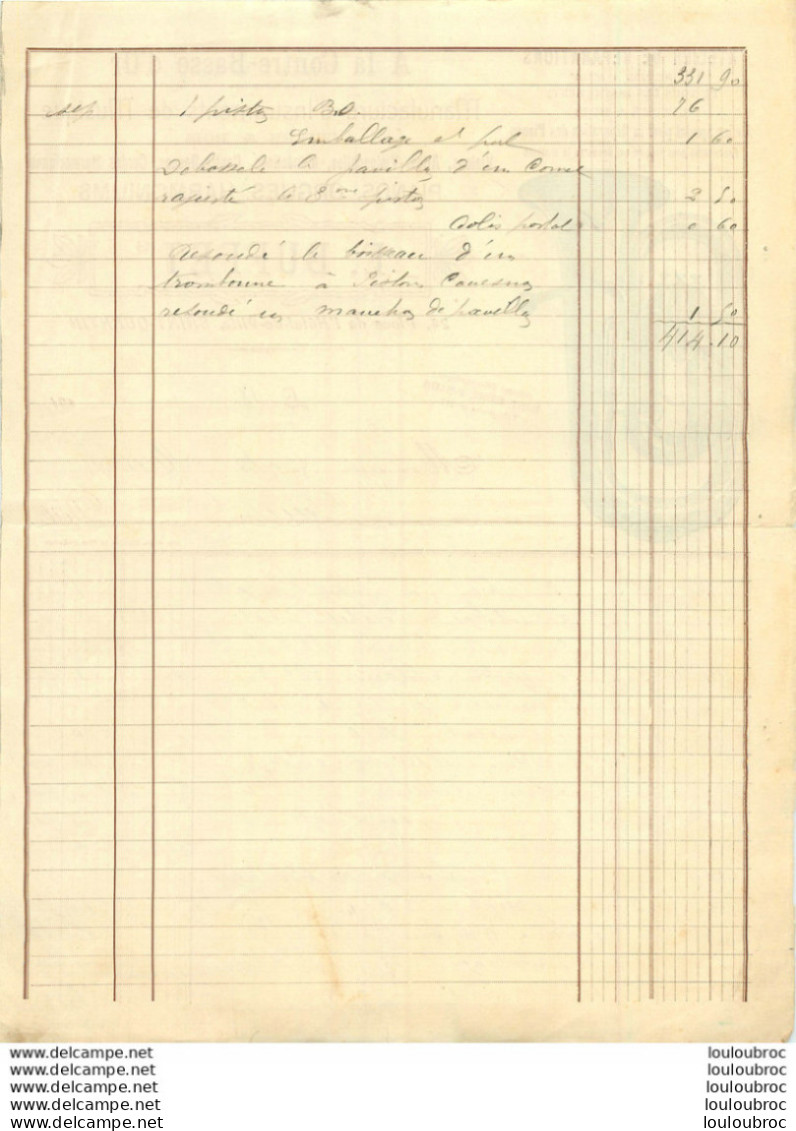 331 90
1 piston 76
Emballage et port 1 60
Débosselé le pavillon d'un Cornet
rajusté le 3eme piston 2 50
Colis postal 0 60
Resoudé le boisseau d'un
trombonne à Piston
resoudé un manchon de pavillon 1 50
414.10
www.delcampe.net louloubroc
www.delcampe.net louloubroc
www.delcampe.net louloubroc
www.delcampe.net louloubroc
www.delcampe.net louloubroc